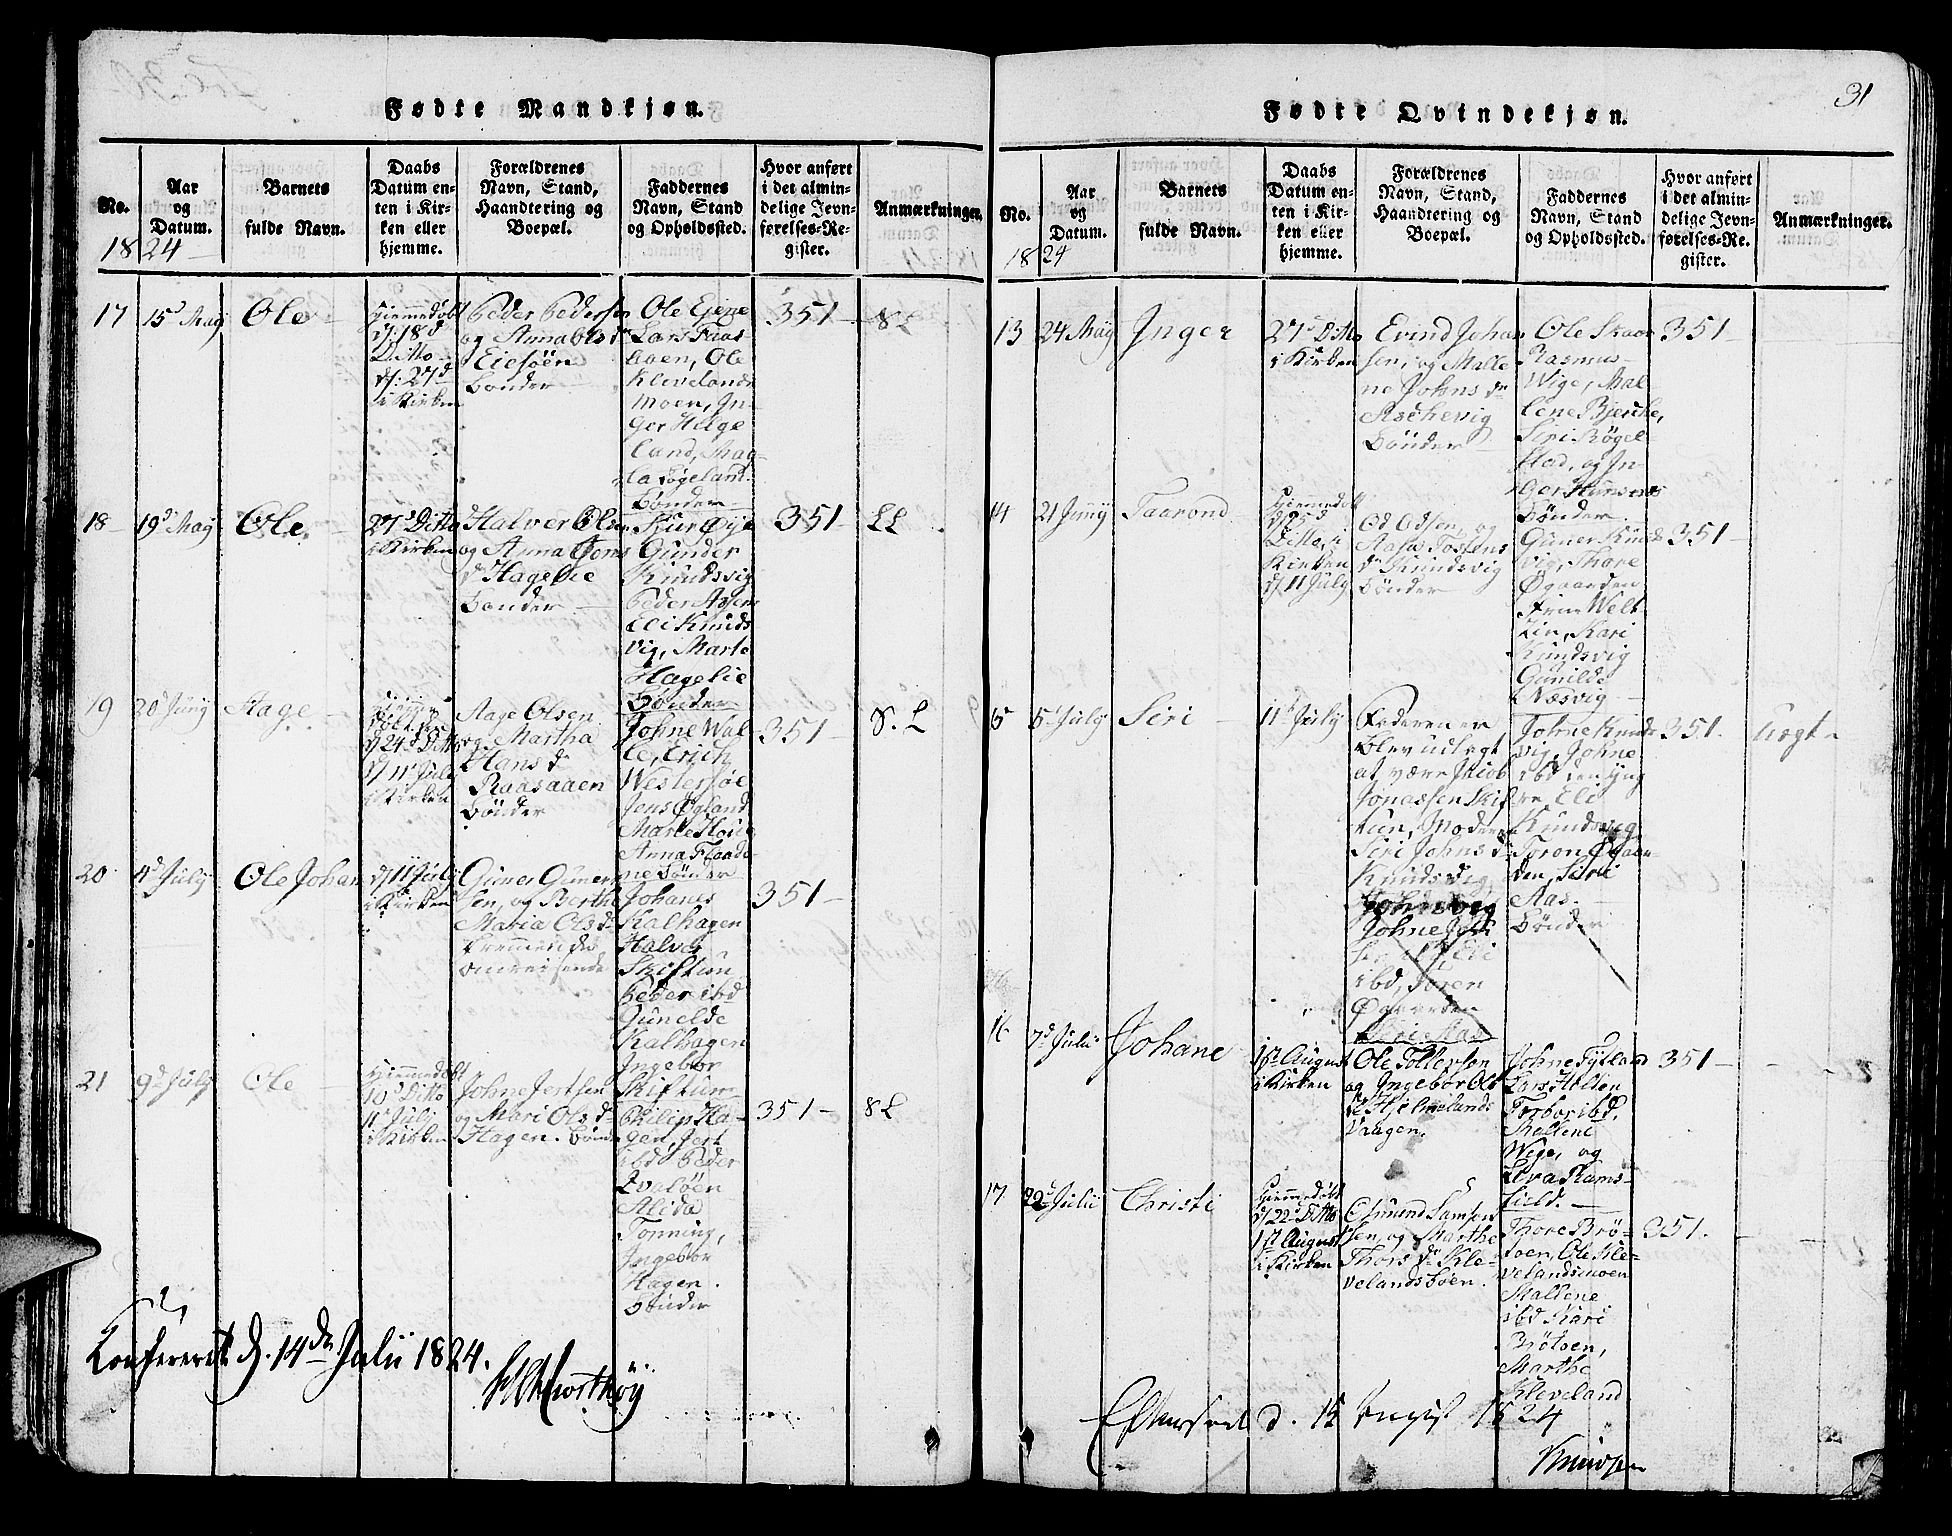 31
Fødte Mandkjøn.
No.
Aar
og
Datum.
Barnets
fulde Navn.
Daabs
Datum en-
ten i Kir-
ken eller
hjemme.
Forældrenes
Navn, Stand,
Haandtering og
Boepæl.
Faddernes
Navn, Stand
og Opholdssted.
Hvor anført
i det almin-
delige Jevn-
førelses-Re-
gister.
Anmærkninger.
1824
17
15d May
Ole
Hiemmedøbt
d: 18d
Ditto
d: 27d
i Kirken
Peder Pedersen
og Anna Ols d
Eiesøen
Bønder
Ole Ejene
Lars Faas-
boen, Ole
Klevelands
moen, In-
ger Helge
land, Mag-
la Søgeland
Bønder
351
18
19d May
Ole
27d Ditto
i Kirken
Halver Olsen
og Anna Jons
d Hagelie
Bønder
Gunder
Knudsvig
Peder
Eli Knuds
vig, Marte
Hagelie
Bønder
351
LL
19
20d Juny
Aage
d 24d Ditto
d 11 July
i Kirken
Aage Olsen
og Martha
Hans d
Raasaaen
Bønder
Johne Wal
le, Erich
Westersøe
Jens Øgland
Marte
Anna Flaade
ne Bønder
351
S. L
20
4d July
Ole Johan
d 11 July
i Kirken
Guner Guner
sen, og Berthe
Maria Ols d
Fremmende
omreisende
Johanes
Kalhagen
Halver
Skiftun
Peder ibd
Gunelde
Kalhagen
Ingebor
Skiftun
351
21
9d July
Ole
Hiemmedøbt
10d Ditto
11 July
i Kirken
Johne Jertsen
og Mari Ols d
Hagen. Bønder
Philip Ha-
gen, Jert
ibd Peder
Alida
Tonning,
Ingebor
Hagen.
Bønder
351
8L
Confereret d. 14de Julii 1824.
Fødte Qvindekjøn.
No.
Aar
og
Datum.
Barnets
fulde Navn.
Daabs
Datum en-
ten i Kir-
ken eller
hjemme.
Forældrenes
Navn, Stand,
Haandtering og
Boepæl.
Faddernes
Navn, Stand
og Opholdssted.
Hvor anført
i det almin-
delige Jevn-
førelses-Re-
gister.
Anmærkninger.
1824
13
24 May
Inger
27d Ditto
i Kirken
Evind Johan
sen, og Malle
ne Johns d
Aschevig
Bønder
Ole Skaar
Rasmus
Wige, Mal-
lene Bjerche,
Siri Bøgel-
stad, og In-
ger
Bønder
351
14
21 Juny
Taarond
Hiemmedøbt
d 25d
Ditto, i
Kirken
d 11 July
Od Odsen, og
Aasa Tostens
d Knudsvig
Bønder
Guner Knuds
vig, Thore
Øgaarden
Kari
Knudsvig
Gunilde
Næsvig
351
15
5d July
Siri
11d July
Faderen er
blev udlagt
at være Jacob
Jonassen Skif
tun, Moderen
Siri Johns d
Knudsvig,
Johne
Eli
ibd, Toren
Øgaarden
Siri Aas
Johne Knuds
vig, Johne
ibd den yng
re, Eli
Knudsvig,
Toron Øgaar-
den, Siri
Aas.
Bønder
351.
16
7d Julii
Johane
1st August
i Kirken
Ole Tollersen
og Ingebor Ols
d Hjelmelands
Vaagen.
Johne Fytland
Lars Holten
Torbor ibd,
Mallene
Wige, og
Eva Rams-
field.
351
17
22d Julii
Christi
Hiemmedøbt
d 22d Ditto
1st August
i Kirken
Osmund Samson
sen, og Marthe
Thors d Kle-
velandsboen.
Thore Brø-
toen, Ole Kle-
velandsmoen
Mallene
ibd Kari
Brøtoen,
Marthe
Kleveland
351.
Efterseet d. 15 August 1824
Knudsen